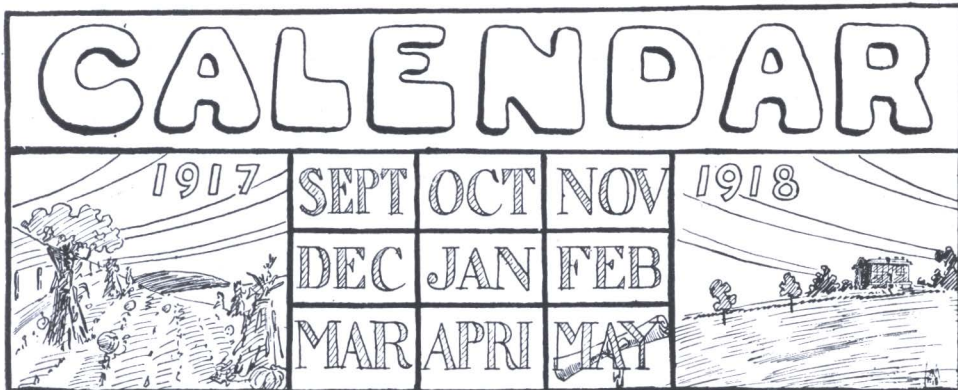 CALENDAR
1917 SEPT OCT NOV 1918
DEC JAN FEB
MAR APRI MAY